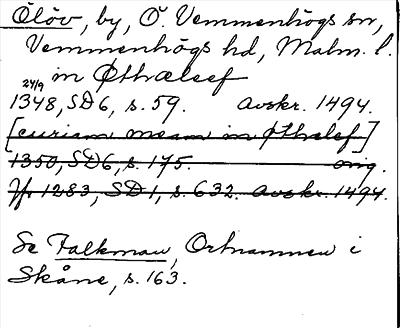 Ölöv, by, Ö. Vemmenhögs sn,
Vemmenhögs hd, Malm. l.
in Øthæleef
24/9
1348, SD 6, s. 59. Avskr. 1494.
[curiam meam in Øthælef]
1350, SD 6, s. 175. orig.
Jfr 1283, SD 1, s. 632. Avskr. 1494.
Se Falkman, Ortnamnen i
Skåne, s. 163.